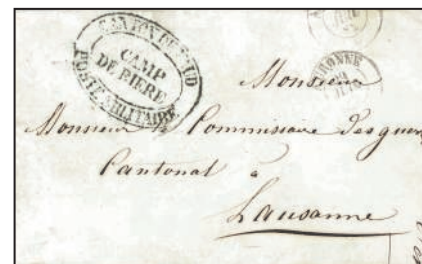 CANTON DE VAUD
CAMP
DE BIERE
POSTE MILITAIRE
AUBONNE
Monsieur
Monsieur Commissaire des guerr
Cantonal à
Lausanne